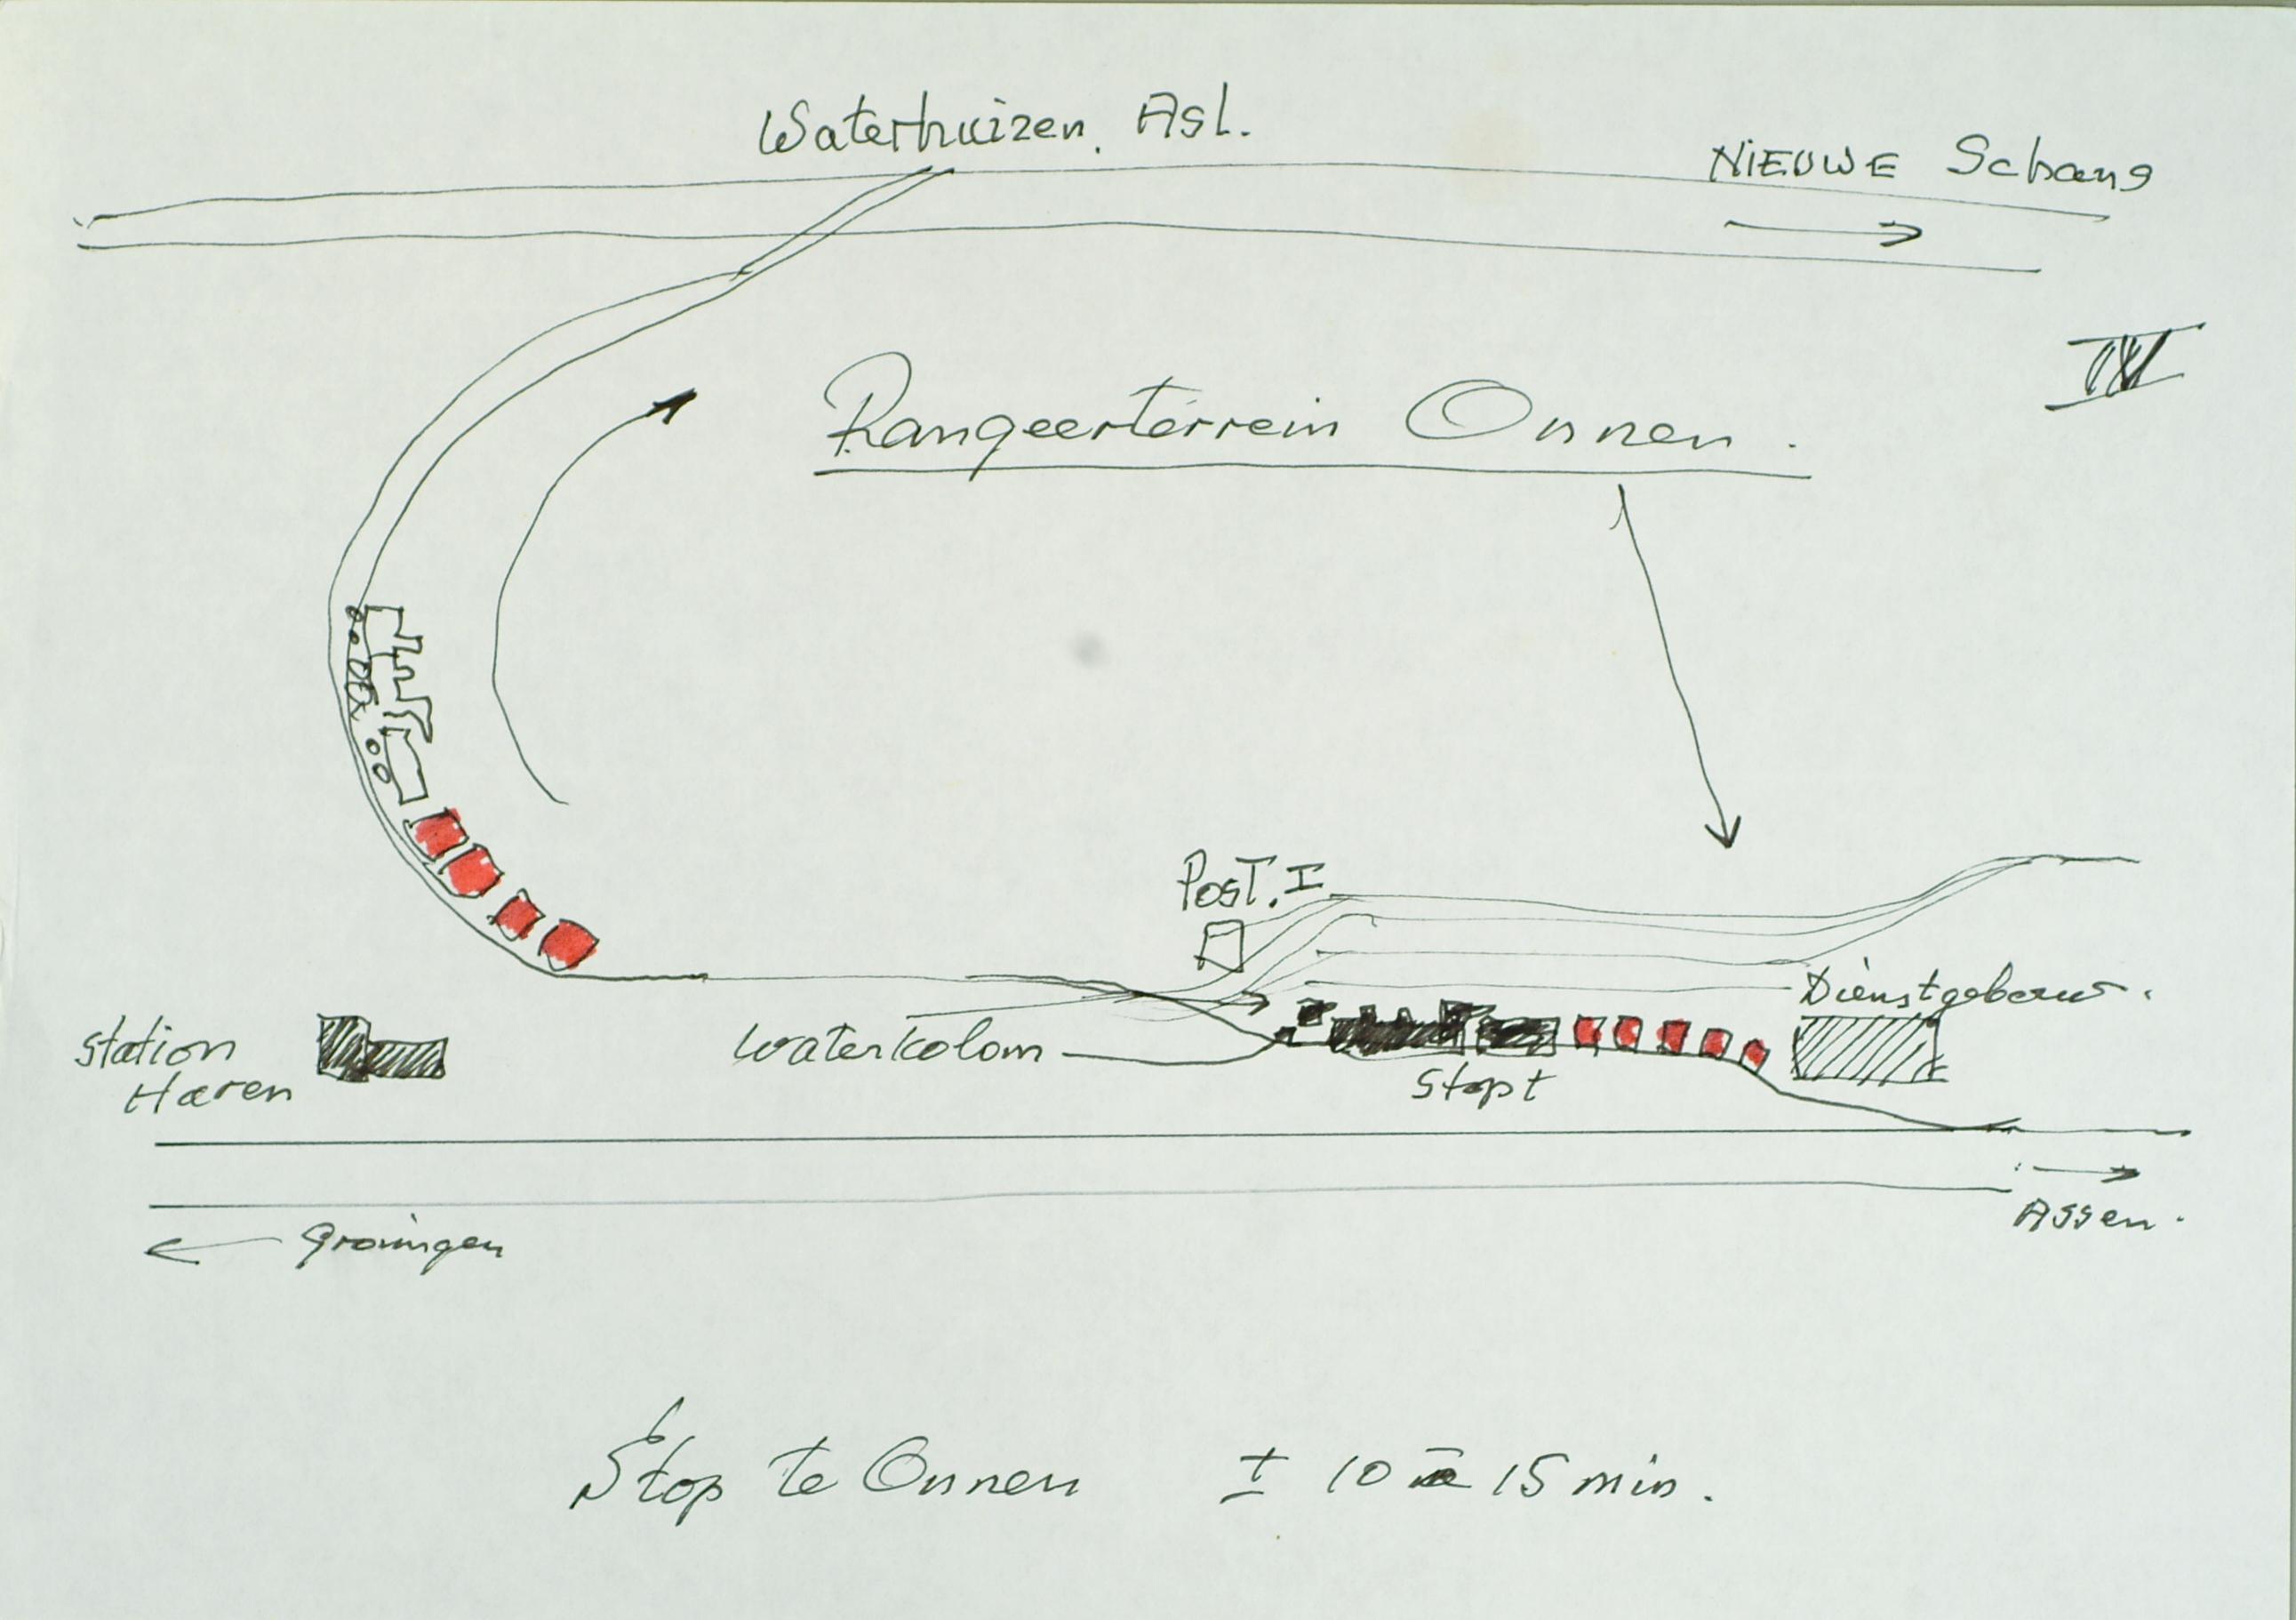 Waterhuizen. Asl.
NIEUWE Schans
IV
Rangeerterrein Onnen.
Post. I
Dienstgebouw.
Waterkolom
Stopt
Station
Haren
Assen.
Groningen
Stop te Onnen ± 10 à 15 min.